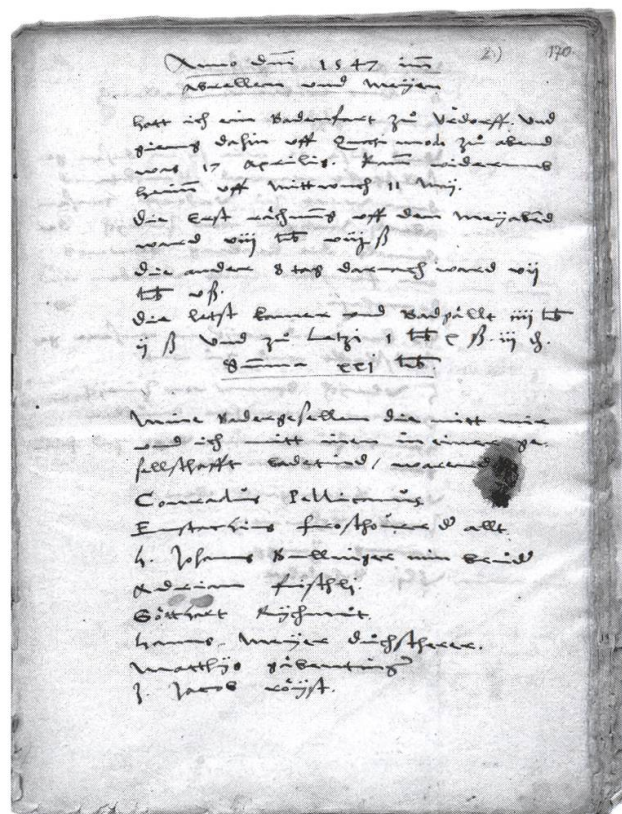 2.) 170
Anno dni 1547 im
Abrellen und Meyen
hatt ich ein Badenfart zů Urdorff. Und
gieng dahin uff Quasi modo zů abend
was 17 Aprilis. Kam widerumb
heim uff Mittwuch 11 Mey.
Die Erst rächnung uff den Meyabend
ward viii lb viii ß
Die ander 8 tag darnach ward vii
lb vß.
Die letst kamer und Badgällt iiii lb
ii ß Und zů Letzi 1 lb x ß. iii
Summa xxi lb.
Meine Badergesellen die mitt mir
und ich mitt inen in einer ge-
sellschafft badetind / warend
Conradus Pellicanus
Eustachius froschouer d allt.
h. Johans Bullinger min brůd
Adrian fischli.
Gothart Rychmut.
Hanns Meyer důchschärer.
Matthys
J. Jacob röyst.